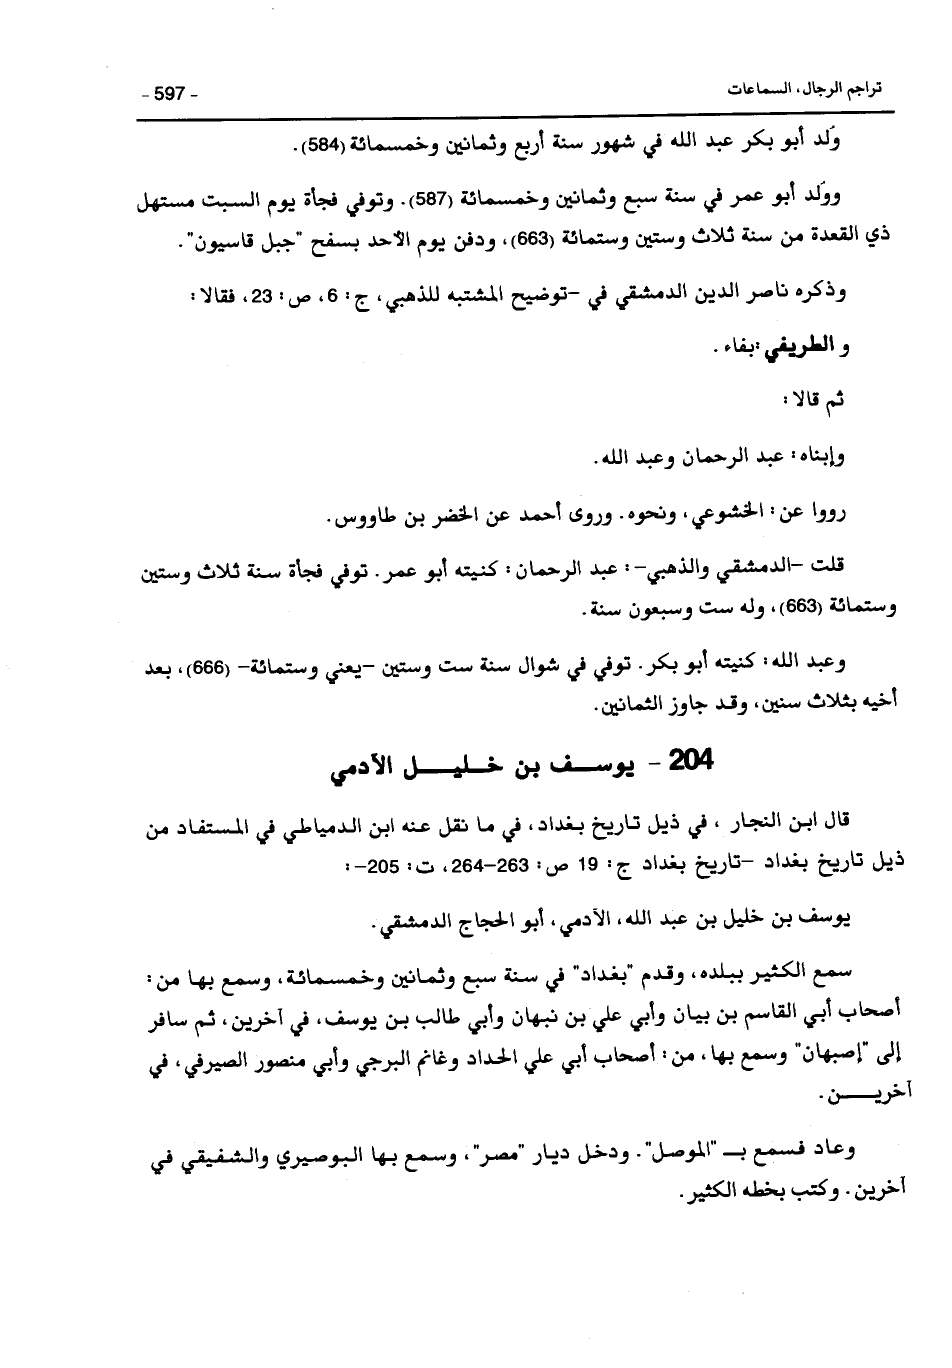 تراجم الرجال، السماعات
- 597 -
وُلد أبو بكر عبد الله في شهور سنة أربع وثمانين وخمسمائة (584).
ووُلد أبو عمر في سنة سبع وثمانين وخمسمائة (587). وتوفي فجأة يوم السبت مستهل
ذي القعدة من سنة ثلاث وستين وستمائة (663)، ودفن يوم الأحد بسفح "جبل قاسيون".
وذكره ناصر الدين الدمشقي في –توضيح المشتبه للذهبي، ج: 6، ص: 23، فقالا:
و الطريفي: بفاء.
ثم قالا:
وإبناه: عبد الرحمان وعبد الله.
رووا عن: الخشوعي، ونحوه. وروى أحمد عن الخضر بن طاووس.
قلت –الدمشقي والذهبي–: عبد الرحمان: كنيته أبو عمر. توفي فجأة سنة ثلاث وستين
وستمائة (663)، وله ست وسبعون سنة.
وعبد الله: كنيته أبو بكر. توفي في شوال سنة ست وستين –يعني وستمائة– (666)، بعد
أخيه بثلاث سنين، وقد جاوز الثمانين.
204 – يوســف بن خــليــل الآدمي
قال ابن النجار ، في ذيل تاريخ بغداد، في ما نقل عنه ابن الدمياطي في المستفاد من
ذيل تاريخ بغداد –تاريخ بغداد ج: 19 ص: 263–264، ت: 205–:
يوسف بن خليل بن عبد الله، الآدمي، أبو الحجاج الدمشقي.
سمع الكثير ببلده، وقدم "بغداد" في سنة سبع وثمانين وخمسمائة، وسمع بها من:
أصحاب أبي القاسم بن بيان وأبي علي بن نبهان وأبي طالب بن يوسف، في آخرين، ثم سافر
إلى "إصبهان" وسمع بها، من: أصحاب أبي علي الحداد وغانم البرجي وأبي منصور الصيرفي، في
آخريــــن.
وعاد فسمع بـــ "الموصل". ودخل ديار "مصر"، وسمع بها البوصيري والشفيقي في
آخرين. وكتب بخطه الكثير.